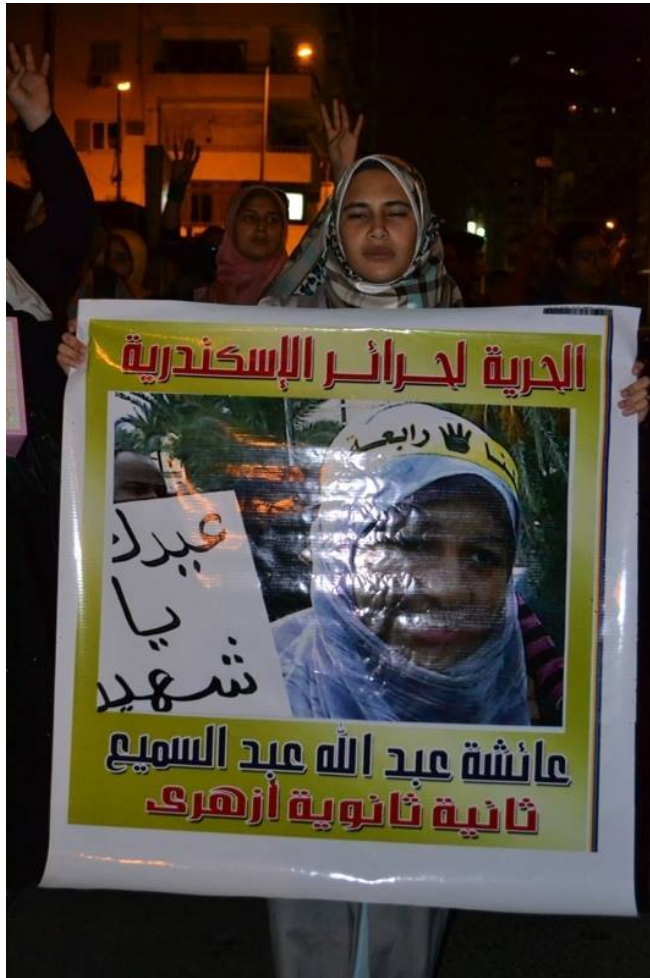 الحرية لحرائر الإسكندرية
رابعة
عيدك
يا
شهيد
عائشة عبد الله عبد السميع
ثانية ثانوية أزهرى